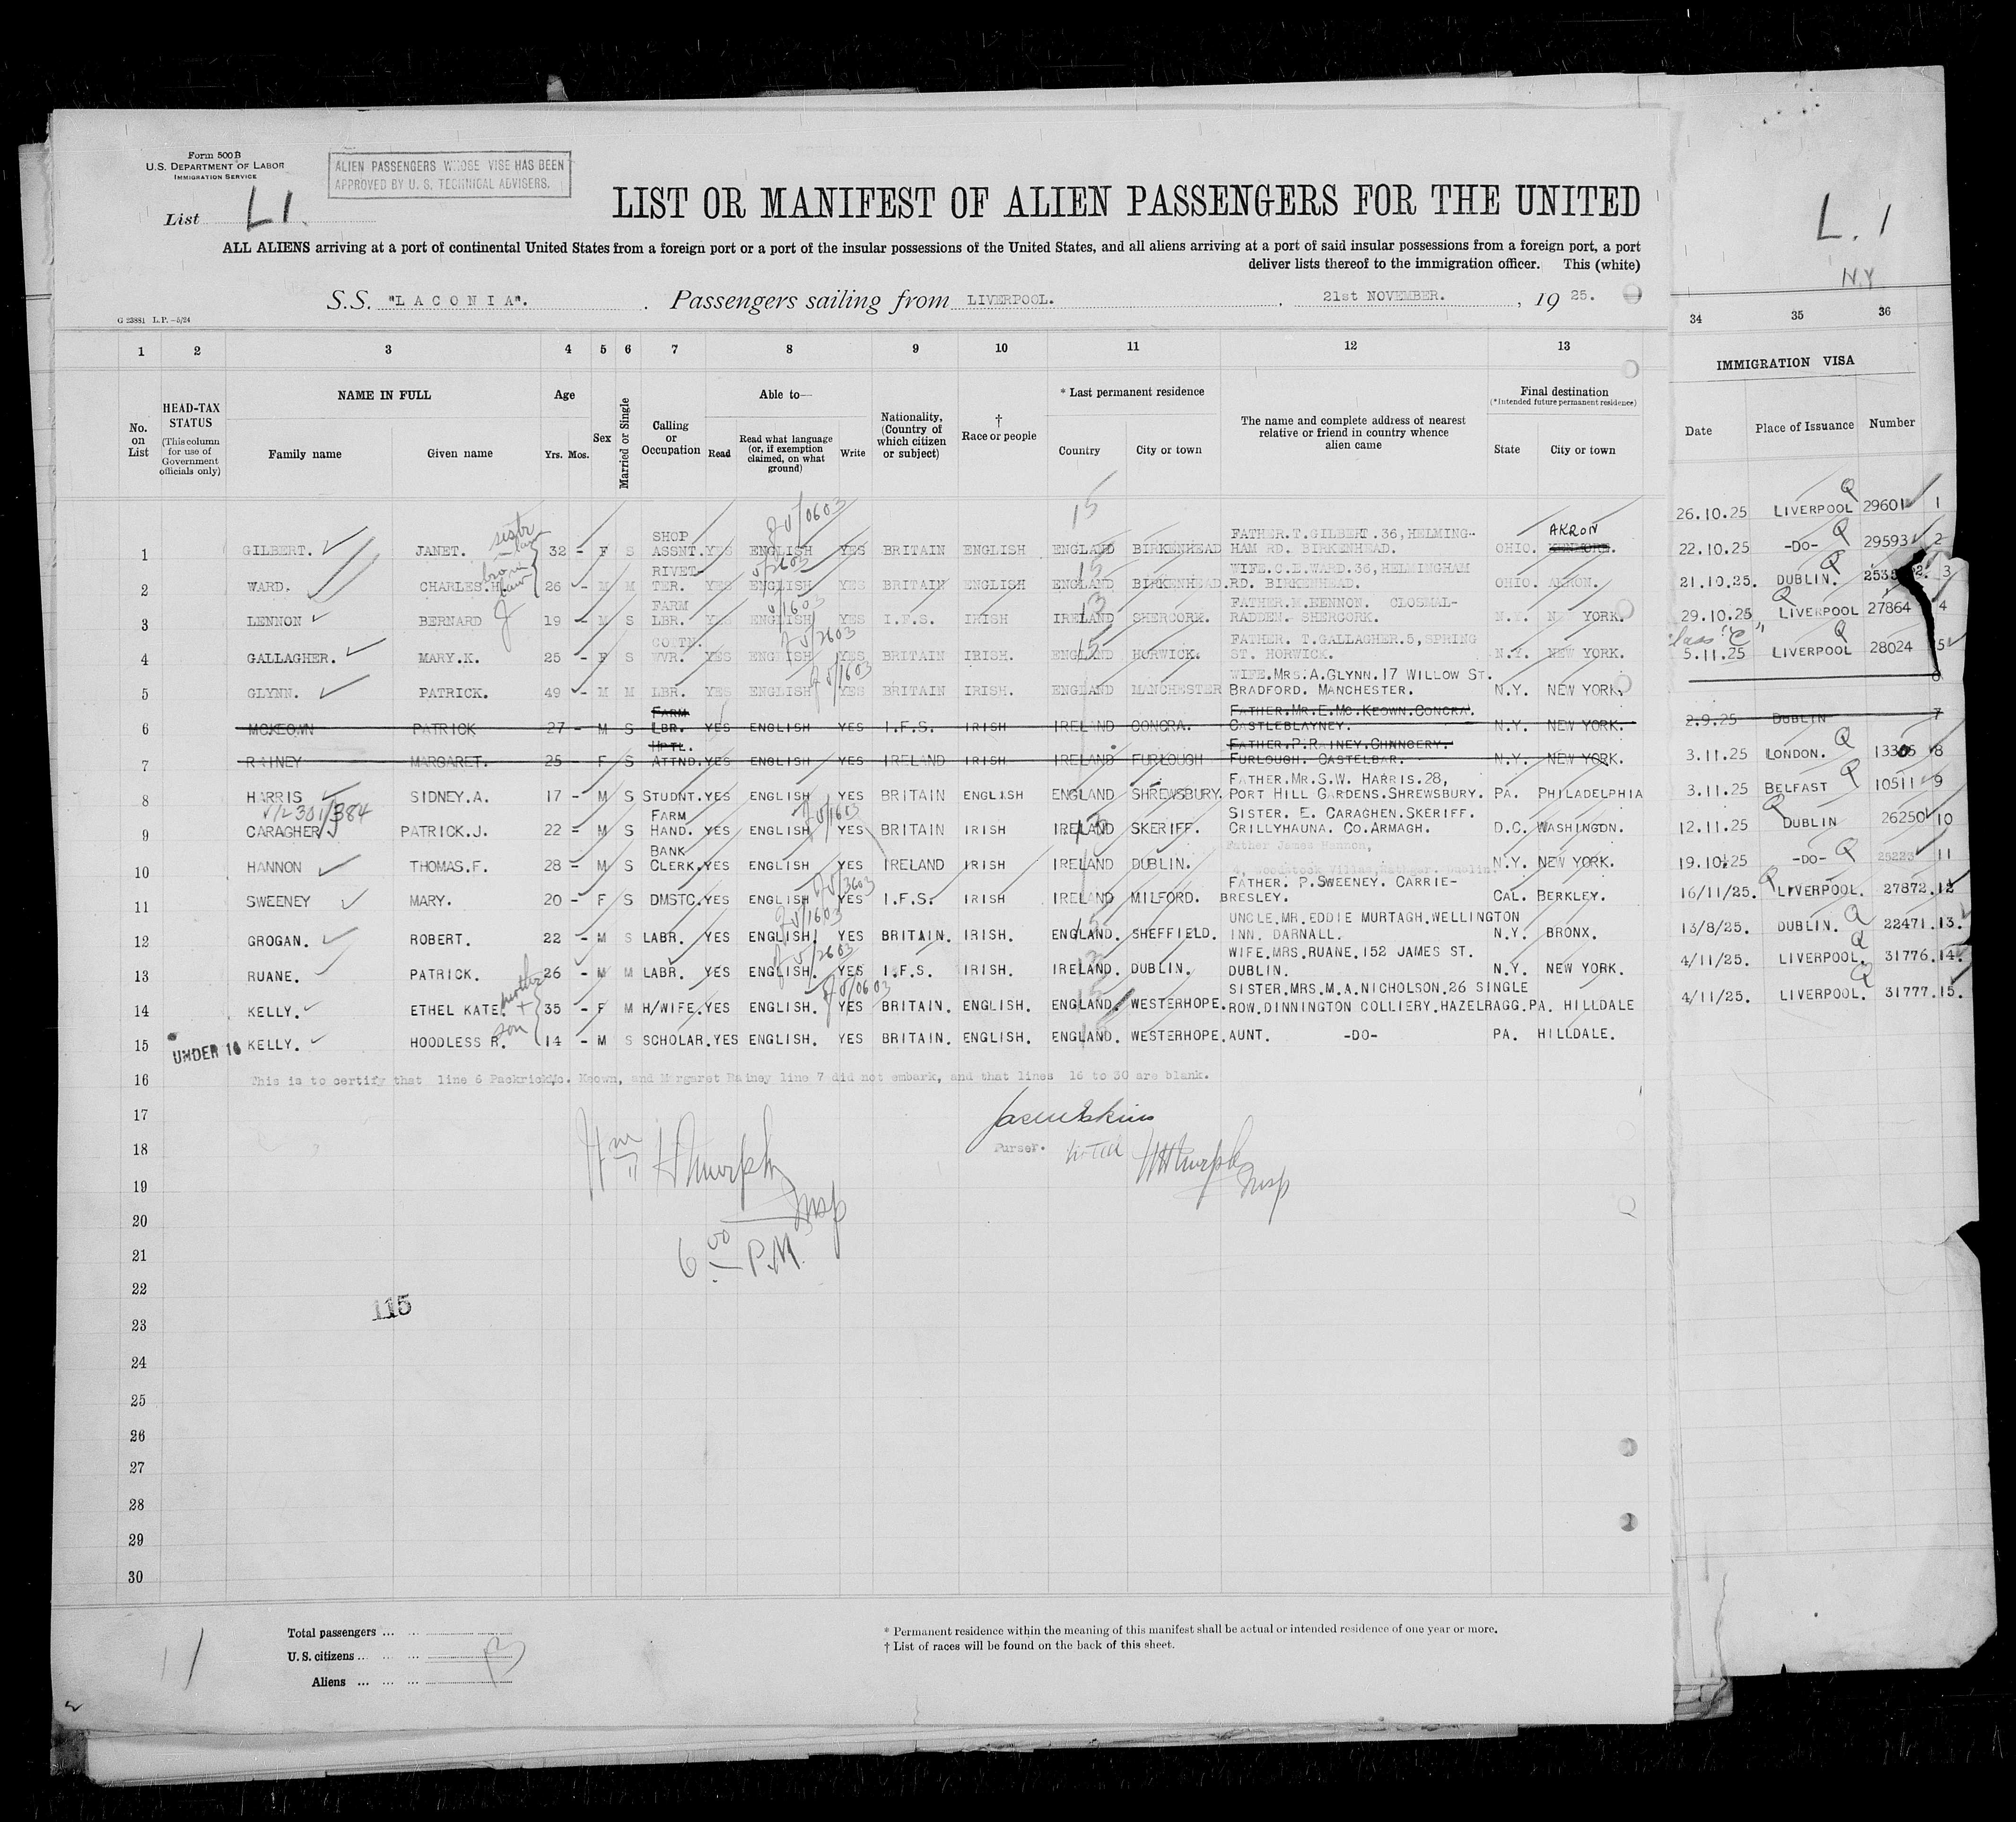 Form 500B
U.S. DEPARTMENT OF LABOR
IMMIGRATION SERVICE
ALIEN PASSENGERS WHOSE VISE HAS BEEN
APPROVED BY U. S. TECHNICAL ADVISERS.
List L1.
LIST OR MANIFEST OF ALIEN PASSENGERS FOR THE UNITED
ALL ALIENS arriving at a port of continental United States from a foreign port or a port of the insular possessions of the United States, and all aliens arriving at a port of said insular possessions from a foreign port, a port
deliver lists thereof to the immigration officer. This (white)
S.S. "LACONIA". Passengers sailing from LIVERPOOL. 21st NOVEMBER. , 19 25.
G 23881 L.P.—5/24
L. 1
N.Y.
1 2 3 4 5 6 7 8 9 10 11 12 13 34 35 36
No. on List
HEAD-TAX STATUS
(This column for use of Government officials only)
NAME IN FULL
Family name Given name
Age
Yrs. Mos.
Sex
Married or Single
Calling or Occupation
Able to—
Read Read what language (or, if exemption claimed, on what ground) Write
Nationality, (Country of which citizen or subject)
† Race or people
* Last permanent residence
Country City or town
The name and complete address of nearest relative or friend in country whence alien came
Final destination
(*Intended future permanent residence)
State City or town
IMMIGRATION VISA
Date Place of Issuance Number
1 GILBERT. JANET. 32 - F S SHOP ASSNT. YES ENGLISH YES BRITAIN ENGLISH ENGLAND BIRKENHEAD FATHER.T.GILBERT.36,HELMING-HAM RD. BIRKENHEAD. OHIO. AKRON
2 WARD. CHARLES.H. 26 - M M RIVET-TER. YES ENGLISH YES BRITAIN ENGLISH ENGLAND BIRKENHEAD. WIFE.C.E.WARD.36,HELMINGHAM RD. BIRKENHEAD. OHIO. AKRON.
3 LENNON BERNARD 19 - M S FARM LBR. YES ENGLISH YES I.F.S. IRISH IRELAND SHERCORK. FATHER.M.HENNON. CLOSMAL-RADDEN. SHERCORK. N.Y. NEW YORK.
4 GALLAGHER. MARY.K. 25 - F S COTTN. WVR. YES ENGLISH YES BRITAIN IRISH. ENGLAND HORWICK. FATHER. T.GALLAGHER.5,SPRING ST. HORWICK. N.Y. NEW YORK.
5 GLYNN. PATRICK. 49 - M M LBR. YES ENGLISH YES BRITAIN IRISH. ENGLAND MANCHESTER WIFE.MRS.A.GLYNN.17 WILLOW ST. BRADFORD. MANCHESTER. N.Y. NEW YORK.
6 MCKEOWN PATRICK 27 - M S FARM LBR. YES ENGLISH YES I.F.S. IRISH IRELAND CONCRA. FATHER.MR.E.MC.KEOWN.CONCRA. CASTLEBLAYNEY. N.Y. NEW YORK.
7 RAINEY MARGARET. 25 - F S HPTL. ATTND. YES ENGLISH YES IRELAND IRISH IRELAND FURLOUGH FATHER.P.RAINEY.CHNNCERY. FURLOUGH. CASTELBAR. N.Y. NEW YORK.
8 HARRIS SIDNEY.A. 17 - M S STUDNT. YES ENGLISH YES BRITAIN ENGLISH ENGLAND SHREWSBURY. FATHER.MR.S.W. HARRIS.28, PORT HILL GARDENS.SHREWSBURY. PA. PHILADELPHIA
9 CARAGHER PATRICK.J. 22 - M S FARM HAND. YES ENGLISH YES BRITAIN IRISH IRELAND SKERIFF. SISTER. E. CARAGHEN.SKERIFF. CRILLYHAUNA. CO.ARMAGH. D.C. WASHINGON.
10 HANNON THOMAS.F. 28 - M S BANK CLERK. YES ENGLISH YES IRELAND IRISH IRELAND DUBLIN. Father James Hannon, N.Y. NEW YORK.
11 SWEENEY MARY. 20 - F S DMSTC. YES ENGLISH YES I.F.S. IRISH IRELAND MILFORD. FATHER. P.SWEENEY. CARRIE-BRESLEY. CAL. BERKLEY.
12 GROGAN. ROBERT. 22 - M S LABR. YES ENGLISH. YES BRITAIN. IRISH. ENGLAND. SHEFFIELD. UNCLE.MR.EDDIE MURTAGH.WELLINGTON INN. DARNALL. N.Y. BRONX.
13 RUANE. PATRICK. 26 - M M LABR. YES ENGLISH. YES I.F.S. IRISH. IRELAND. DUBLIN. WIFE.MRS.RUANE.152 JAMES ST. DUBLIN. N.Y. NEW YORK.
14 KELLY. ETHEL KATE. mother + 35 - F M H/WIFE. YES ENGLISH. YES BRITAIN. ENGLISH. ENGLAND. WESTERHOPE. SISTER.MRS.M.A.NICHOLSON.26 SINGLE ROW.DINNINGTON COLLIERY.HAZELRAGG. PA. HILLDALE
15 UNDER 16 KELLY. HOODLESS R. son 14 - M S SCHOLAR. YES ENGLISH. YES BRITAIN. ENGLISH. ENGLAND. WESTERHOPE. AUNT. -DO- PA. HILLDALE.
16 This is to certify that line 6 Packrick Mc. Keown, and Margaret Rainey line 7 did not embark, and that lines 16 to 30 are blank.
17
18 Purser.
19
20
21
22
23
24
25
26
27
28
29
30
6 00 P.M.
115
26.10.25 LIVERPOOL Q 29601 1
22.10.25 -DO- Q 29593 2
21.10.25. DUBLIN. Q 3
29.10.25 LIVERPOOL Q 27864 4
5.11.25 LIVERPOOL Q 28024 5
6
2.9.25 DUBLIN 7
3.11.25 LONDON. Q 13305 8
3.11.25 BELFAST Q 10511 9
12.11.25 DUBLIN Q 26250 10
19.10.25 -DO- Q 11
16/11/25. LIVERPOOL. Q 27872. 12
13/8/25. DUBLIN. Q 22471. 13.
4/11/25. LIVERPOOL. Q 31776. 14.
4/11/25. LIVERPOOL. Q 31777. 15.
Total passengers ...
U.S. citizens ...
Aliens ...
* Permanent residence within the meaning of this manifest shall be actual or intended residence of one year or more.
† List of races will be found on the back of this sheet.